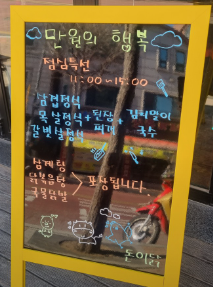 만원의 행복
점심특선
11:00~15:00
삼겹정식
목살정식+된장+김치말이
갈빗살정식 찌개 국수
삼계탕
닭볶음탕 > 포장됩니다.
국물닭발
돈이닭